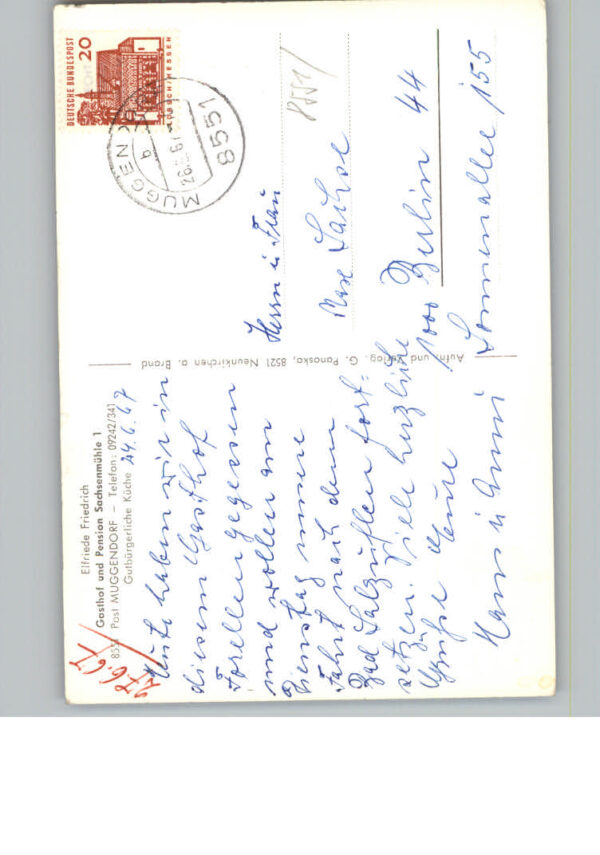 Elfriede Friedrich
Gasthof und Pension Sachsenmühle 1
8551 Post MUGGENDORF – Telefon: 09242/341
Gutbürgerliche Küche
24.6.67
27.6.67
Heute haben wir in
diesem Gasthof
Forellen gegessen
und wollen am
Dienstag unsere
Fahrt nach dem
Bad Salzuflen fort-
setzen. Viele herzliche
Grüße Eure
Hans u. Anni
Aufn. und Verlag: G. Panoska, 8521 Neunkirchen a. Brand
DEUTSCHE BUNDESPOST
20
LORSCH/HESSEN
MUGGENDORF
b
8551
8551
Herrn u. Frau
Max
1000 Berlin 44
Sonnenallee 155